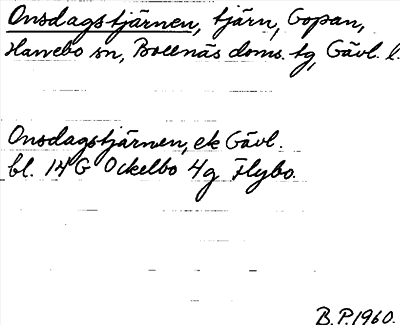 Onsdagstjärnen, tjärn, Gopan,
Hanebo sn, Bollnäs doms. tg, Gävl. l.
Onsdagstjärnen, ek Gävl.
bl. 14 G Ockelbo 4g Flybo.
B.P. 1960.